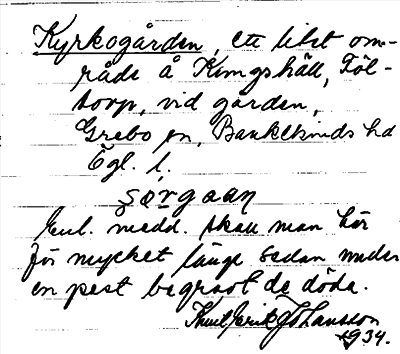 Kyrkogården, ett litet om-
råde å Kungshäll, Föl-
torp, vid gården,
Grebo sn, Bankekinds hd
Ögl. l.
sørgaan
Enl. medd. skall man här
för mycket länge sedan under
en pest begravt de döda.
Knut Erik Johansson
1934.